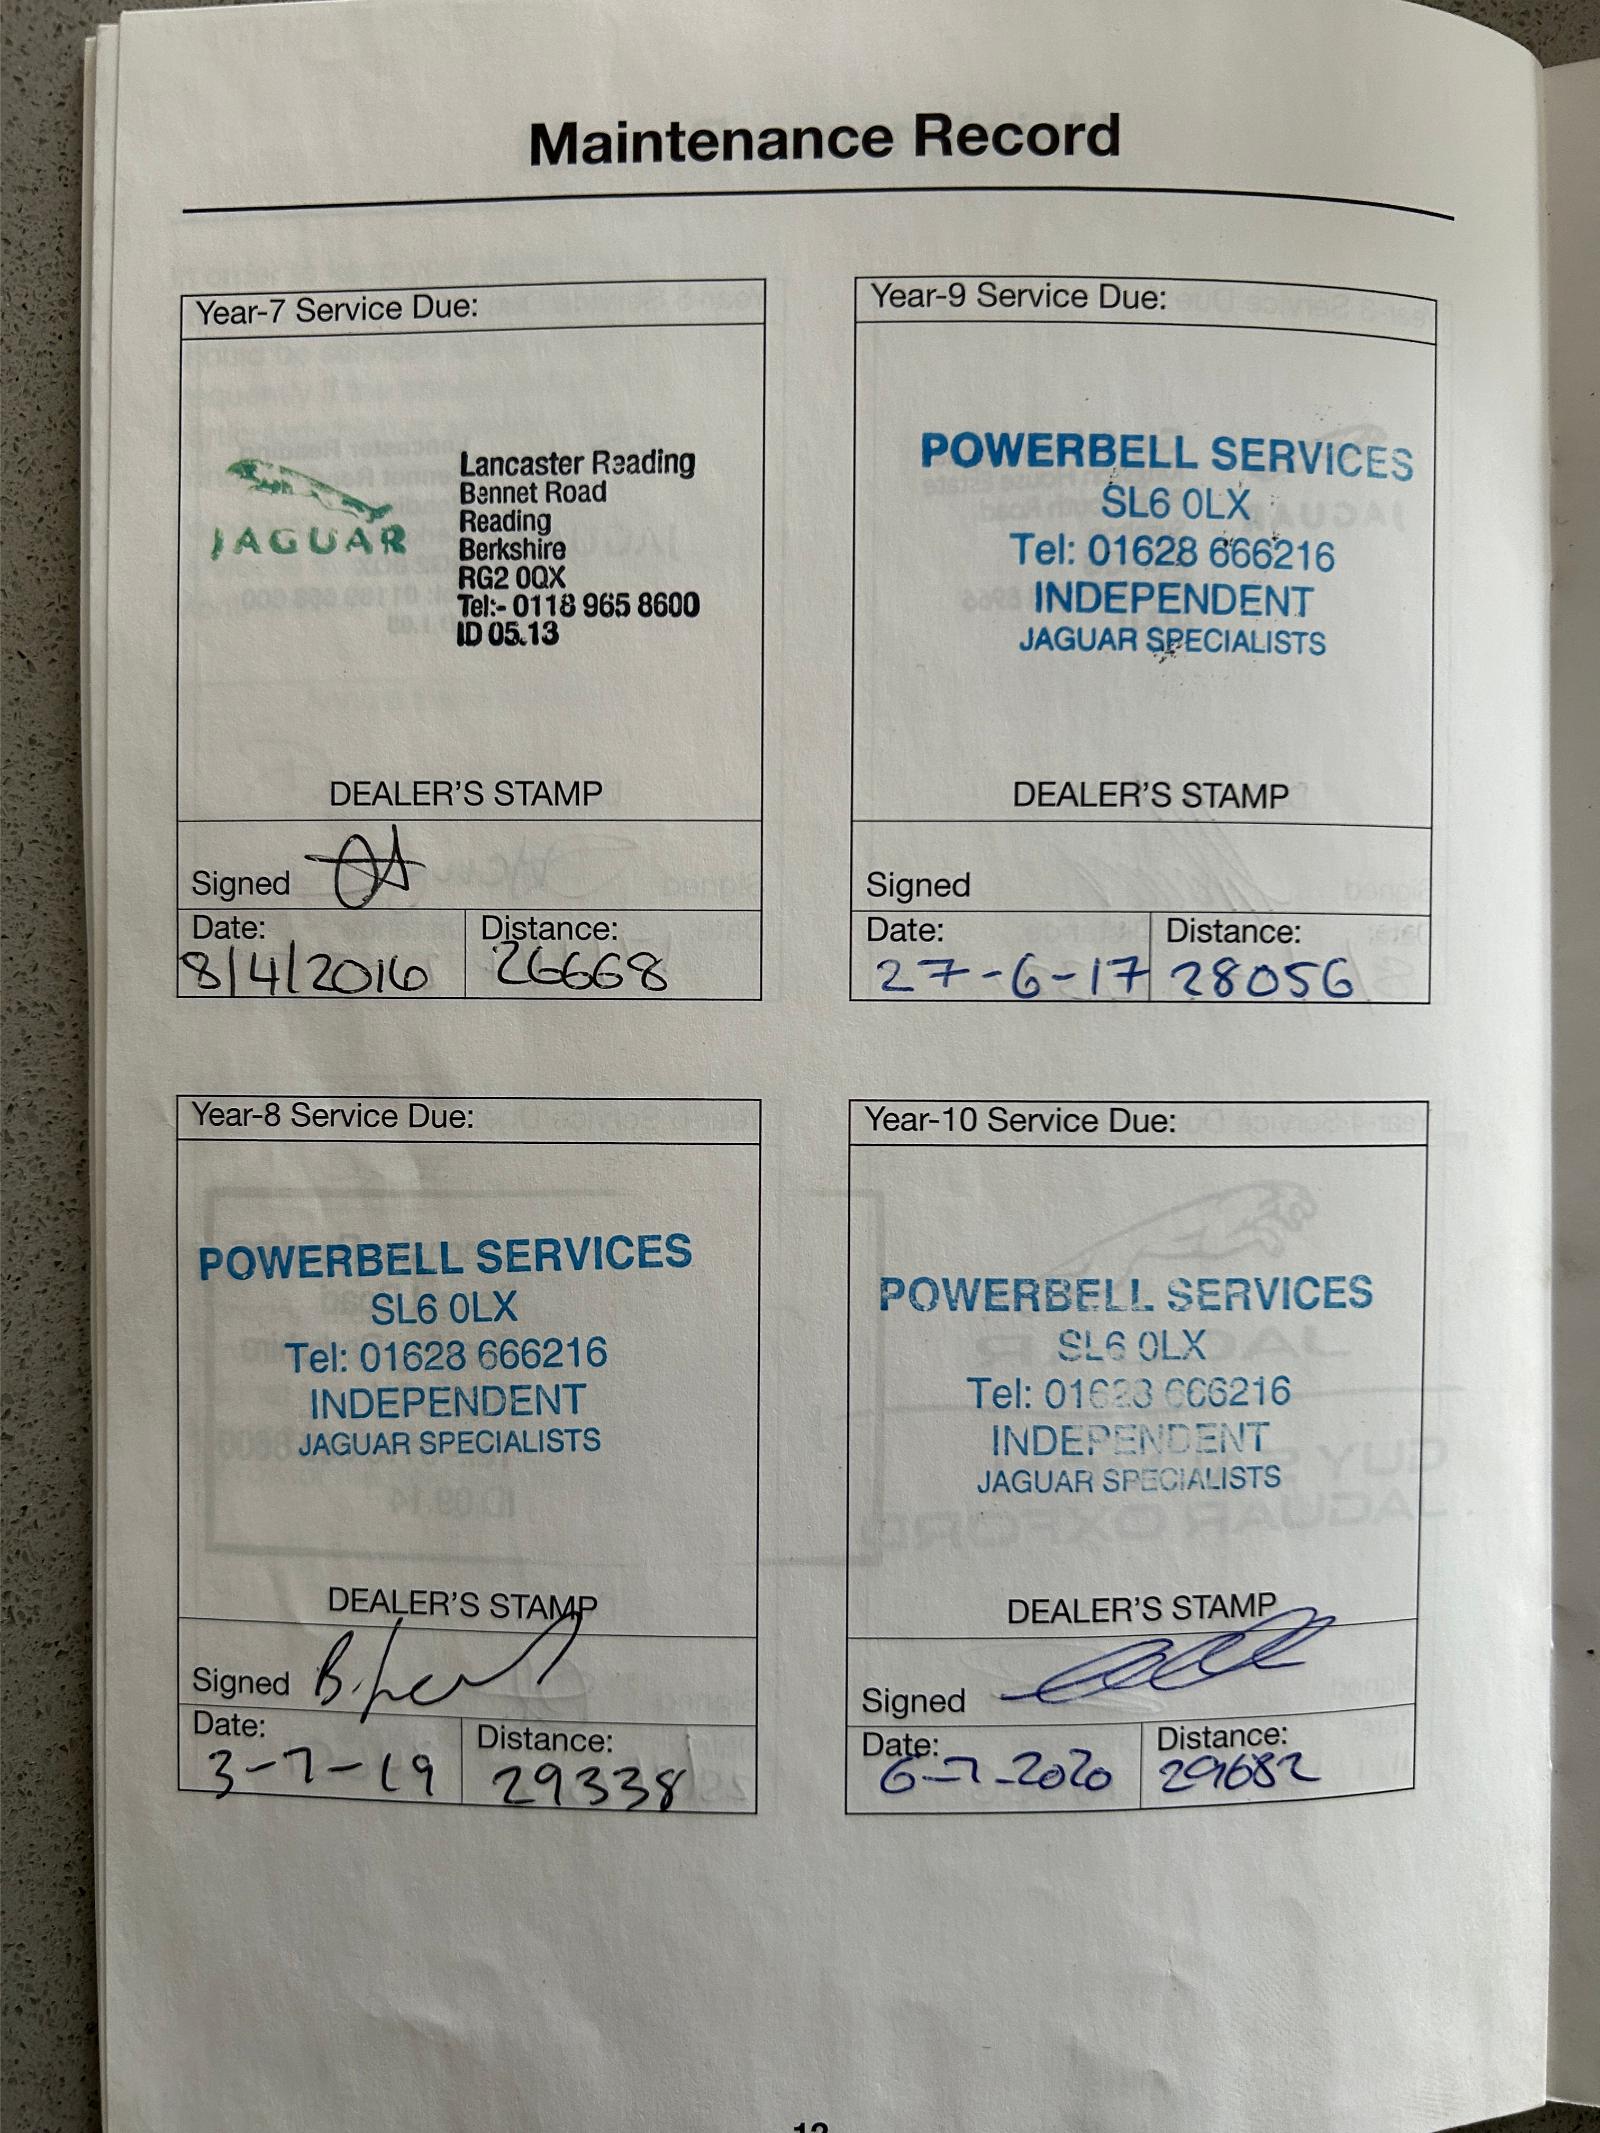 Maintenance Record
Year-7 Service Due:
JAGUAR
Lancaster Reading
Bennet Road
Reading
Berkshire
RG2 0QX
Tel:- 0118 965 8600
ID 05.13
DEALER'S STAMP
Signed
Date:
8/4/2016
Distance:
26668
Year-9 Service Due:
POWERBELL SERVICES
SL6 0LX
Tel: 01628 666216
INDEPENDENT
JAGUAR SPECIALISTS
DEALER'S STAMP
Signed
Date:
27-6-17
Distance:
28056
Year-8 Service Due:
POWERBELL SERVICES
SL6 0LX
Tel: 01628 666216
INDEPENDENT
JAGUAR SPECIALISTS
DEALER'S STAMP
Signed
Date:
3-7-19
Distance:
29338
Year-10 Service Due:
POWERBELL SERVICES
SL6 0LX
Tel: 01628 666216
INDEPENDENT
JAGUAR SPECIALISTS
DEALER'S STAMP
Signed
Date:
6-7-2020
Distance:
29682